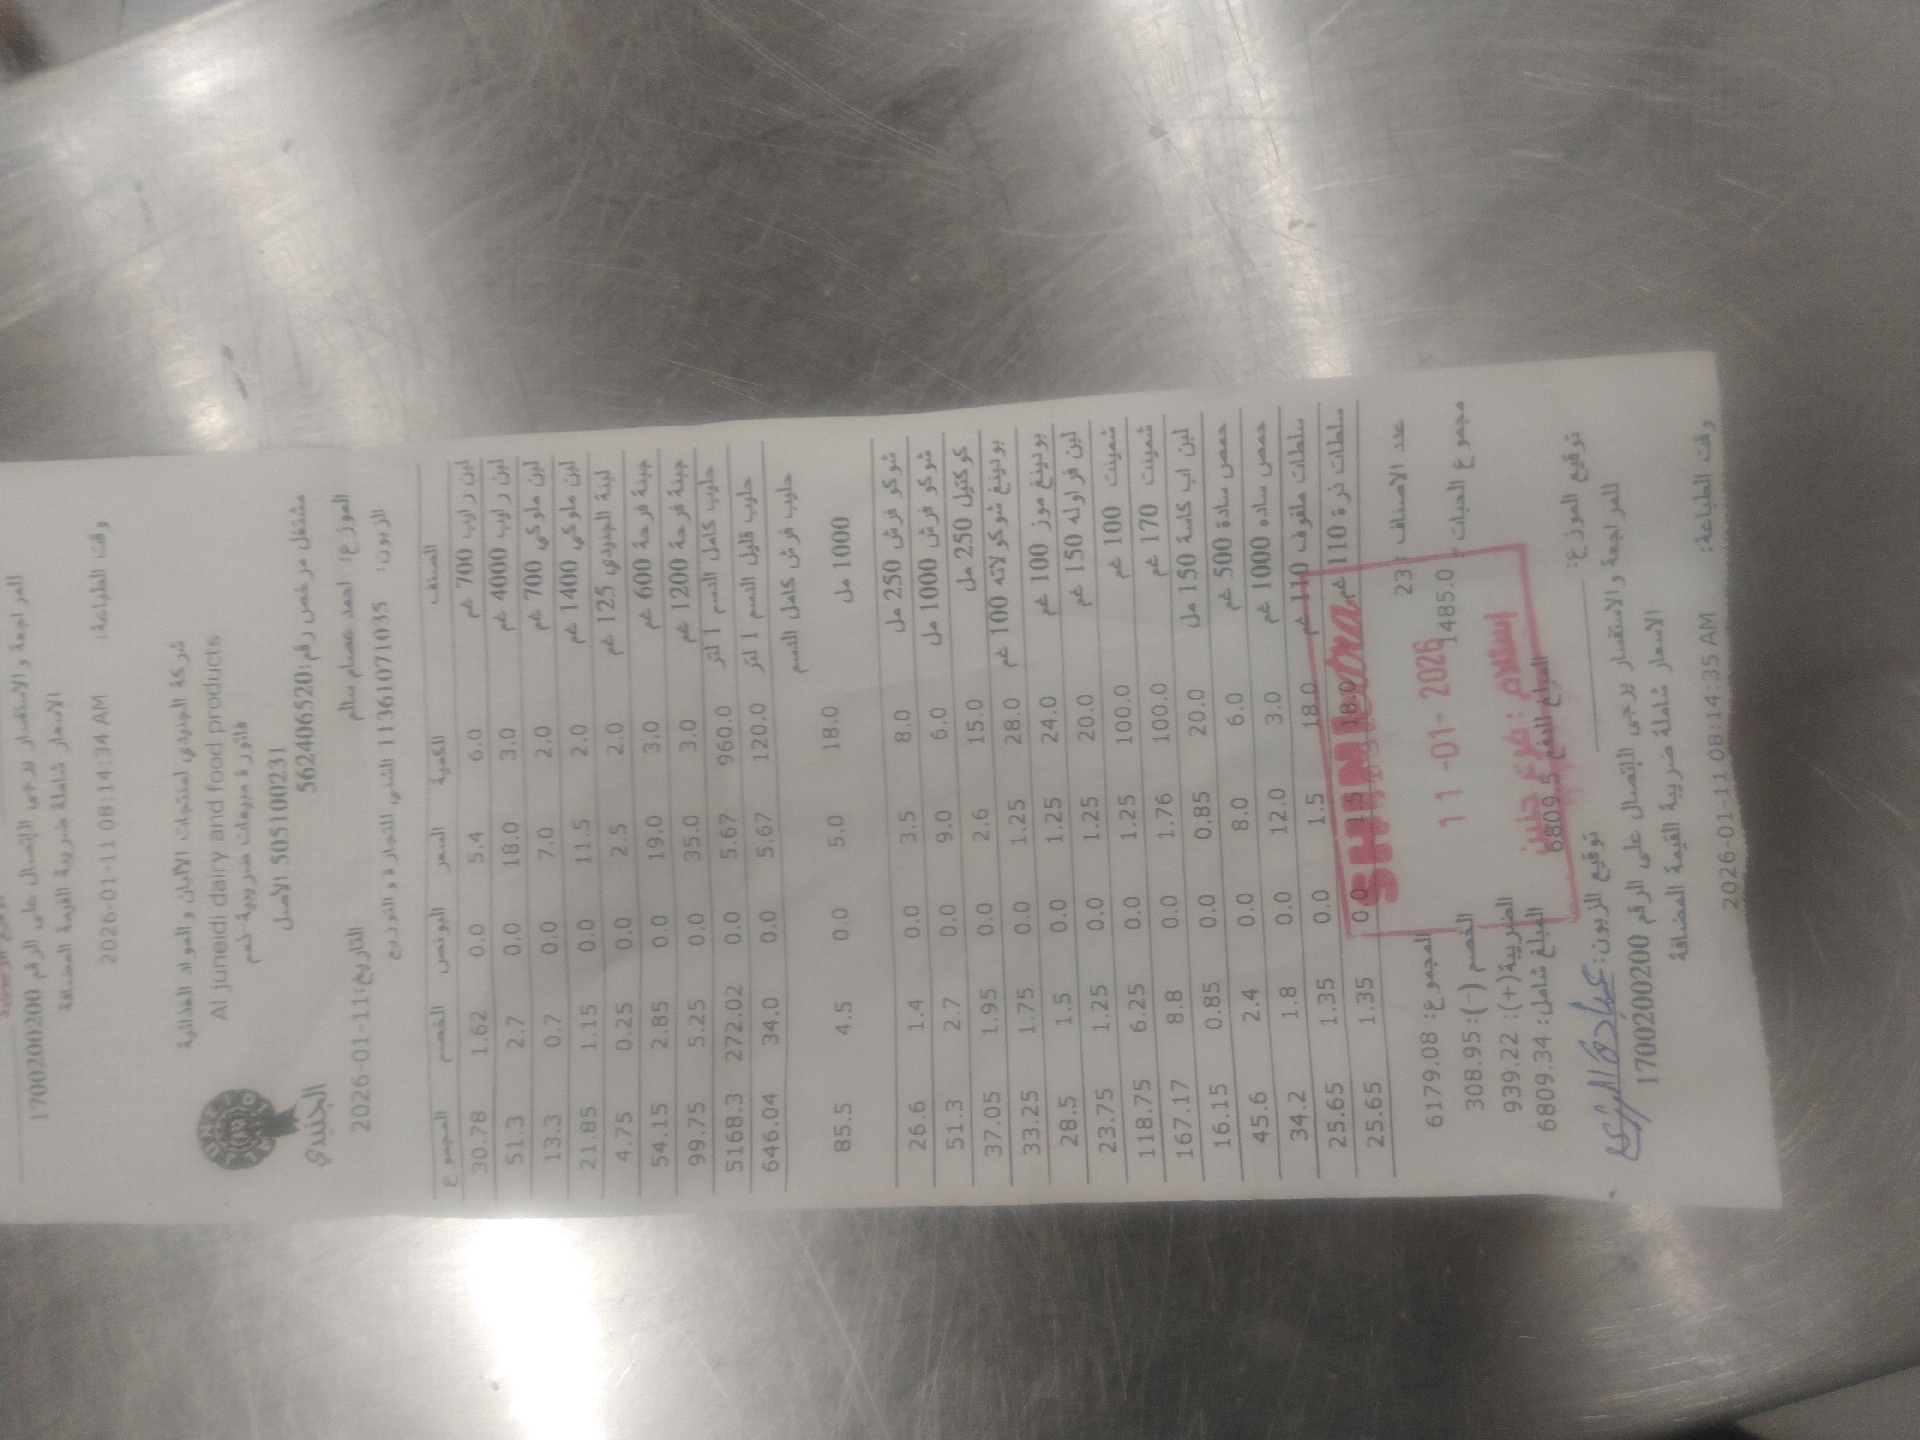 للمراجعة والاستفسار يرجى الإتصال على الرقم 1700200200
الاسعار شاملة ضريبة القيمة المضافة
وقت الطباعة: 2026-01-11 08:14:34 AM
شركة الجنيدي لمنتجات الالبان و المواد الغذائية
Al juneidi dairy and food products
فاتورة مبيعات ضريبية ذمم
505100231 الاصل
مشتغل مرخص رقم:562406520
الجنيدي
الموزع: احمد عصام سالم
التاريخ:2026-01-11
الزبون: 1136107103५ الشني للتجارة و التوزيع
الصنف الكمية السعر البونص الخصم المجموع
لبن رايب 700 غم 6.0 5.4 0.0 1.62 30.78
لبن رايب 4000 غم 3.0 18.0 0.0 2.7 51.3
لبن ملوكي 700 غم 2.0 7.0 0.0 0.7 13.3
لبن ملوكي 1400 غم 2.0 11.5 0.0 1.15 21.85
لبنة الجنيدي 125 غم 2.0 2.5 0.0 0.25 4.75
جبنة فرحة 600 غم 3.0 19.0 0.0 2.85 54.15
جبنة فرحة 1200 غم 3.0 35.0 0.0 5.25 99.75
حليب كامل الدسم 1 لتر 960.0 5.67 0.0 272.02 5168.3
حليب قليل الدسم 1 لتر 120.0 5.67 0.0 34.0 646.04
حليب فرش كامل الدسم
1000 مل 18.0 5.0 0.0 4.5 85.5
شوكو فرش 250 مل 8.0 3.5 0.0 1.4 26.6
شوكو فرش 1000 مل 6.0 9.0 0.0 2.7 51.3
كوكتيل 250 مل 15.0 2.6 0.0 1.95 37.05
بودينغ شوكولاته 100 غم 28.0 1.25 0.0 1.75 33.25
بودينغ موز 100 غم 24.0 1.25 0.0 1.5 28.5
لبن فراوله 150 غم 20.0 1.25 0.0 1.25 23.75
شمينت 100 غم 100.0 1.25 0.0 6.25 118.75
شمينت 170 غم 100.0 1.76 0.0 8.8 167.17
لبن اب كاسة 150 مل 20.0 0.85 0.0 0.85 16.15
حمص سادة 500 غم 6.0 8.0 0.0 2.4 45.6
حمص ساده 1000 غم 3.0 12.0 0.0 1.8 34.2
سلطات ملفوف 110 غم 18.0 1.5 0.0 1.35 25.65
سلطات ذرة 110 غم 18.0 1.5 0.0 1.35 25.65
عدد الاصناف : 23
المجموع: 6179.08
مجموع الحبات : 1485.0
الخصم (-): 308.95
11 -01- 2026
الضريبة(+): 939.22
المبلغ شامل: 6809.34
المبلغ للدفع 6809.5
توقيع الموزع:
توقيع الزبون:
للمراجعة والاستفسار يرجى الإتصال على الرقم 1700200200
الاسعار شاملة ضريبة القيمة المضافة
وقت الطباعة: 2026-01-11 08:14:35 AM